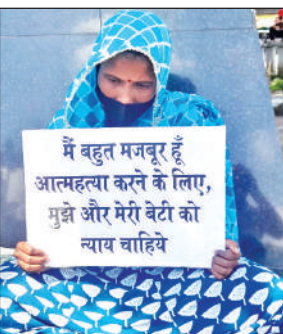 मैं बहुत मजबूर हूँ
आत्महत्या करने के लिए,
मुझे और मेरी बेटी को
न्याय चाहिये